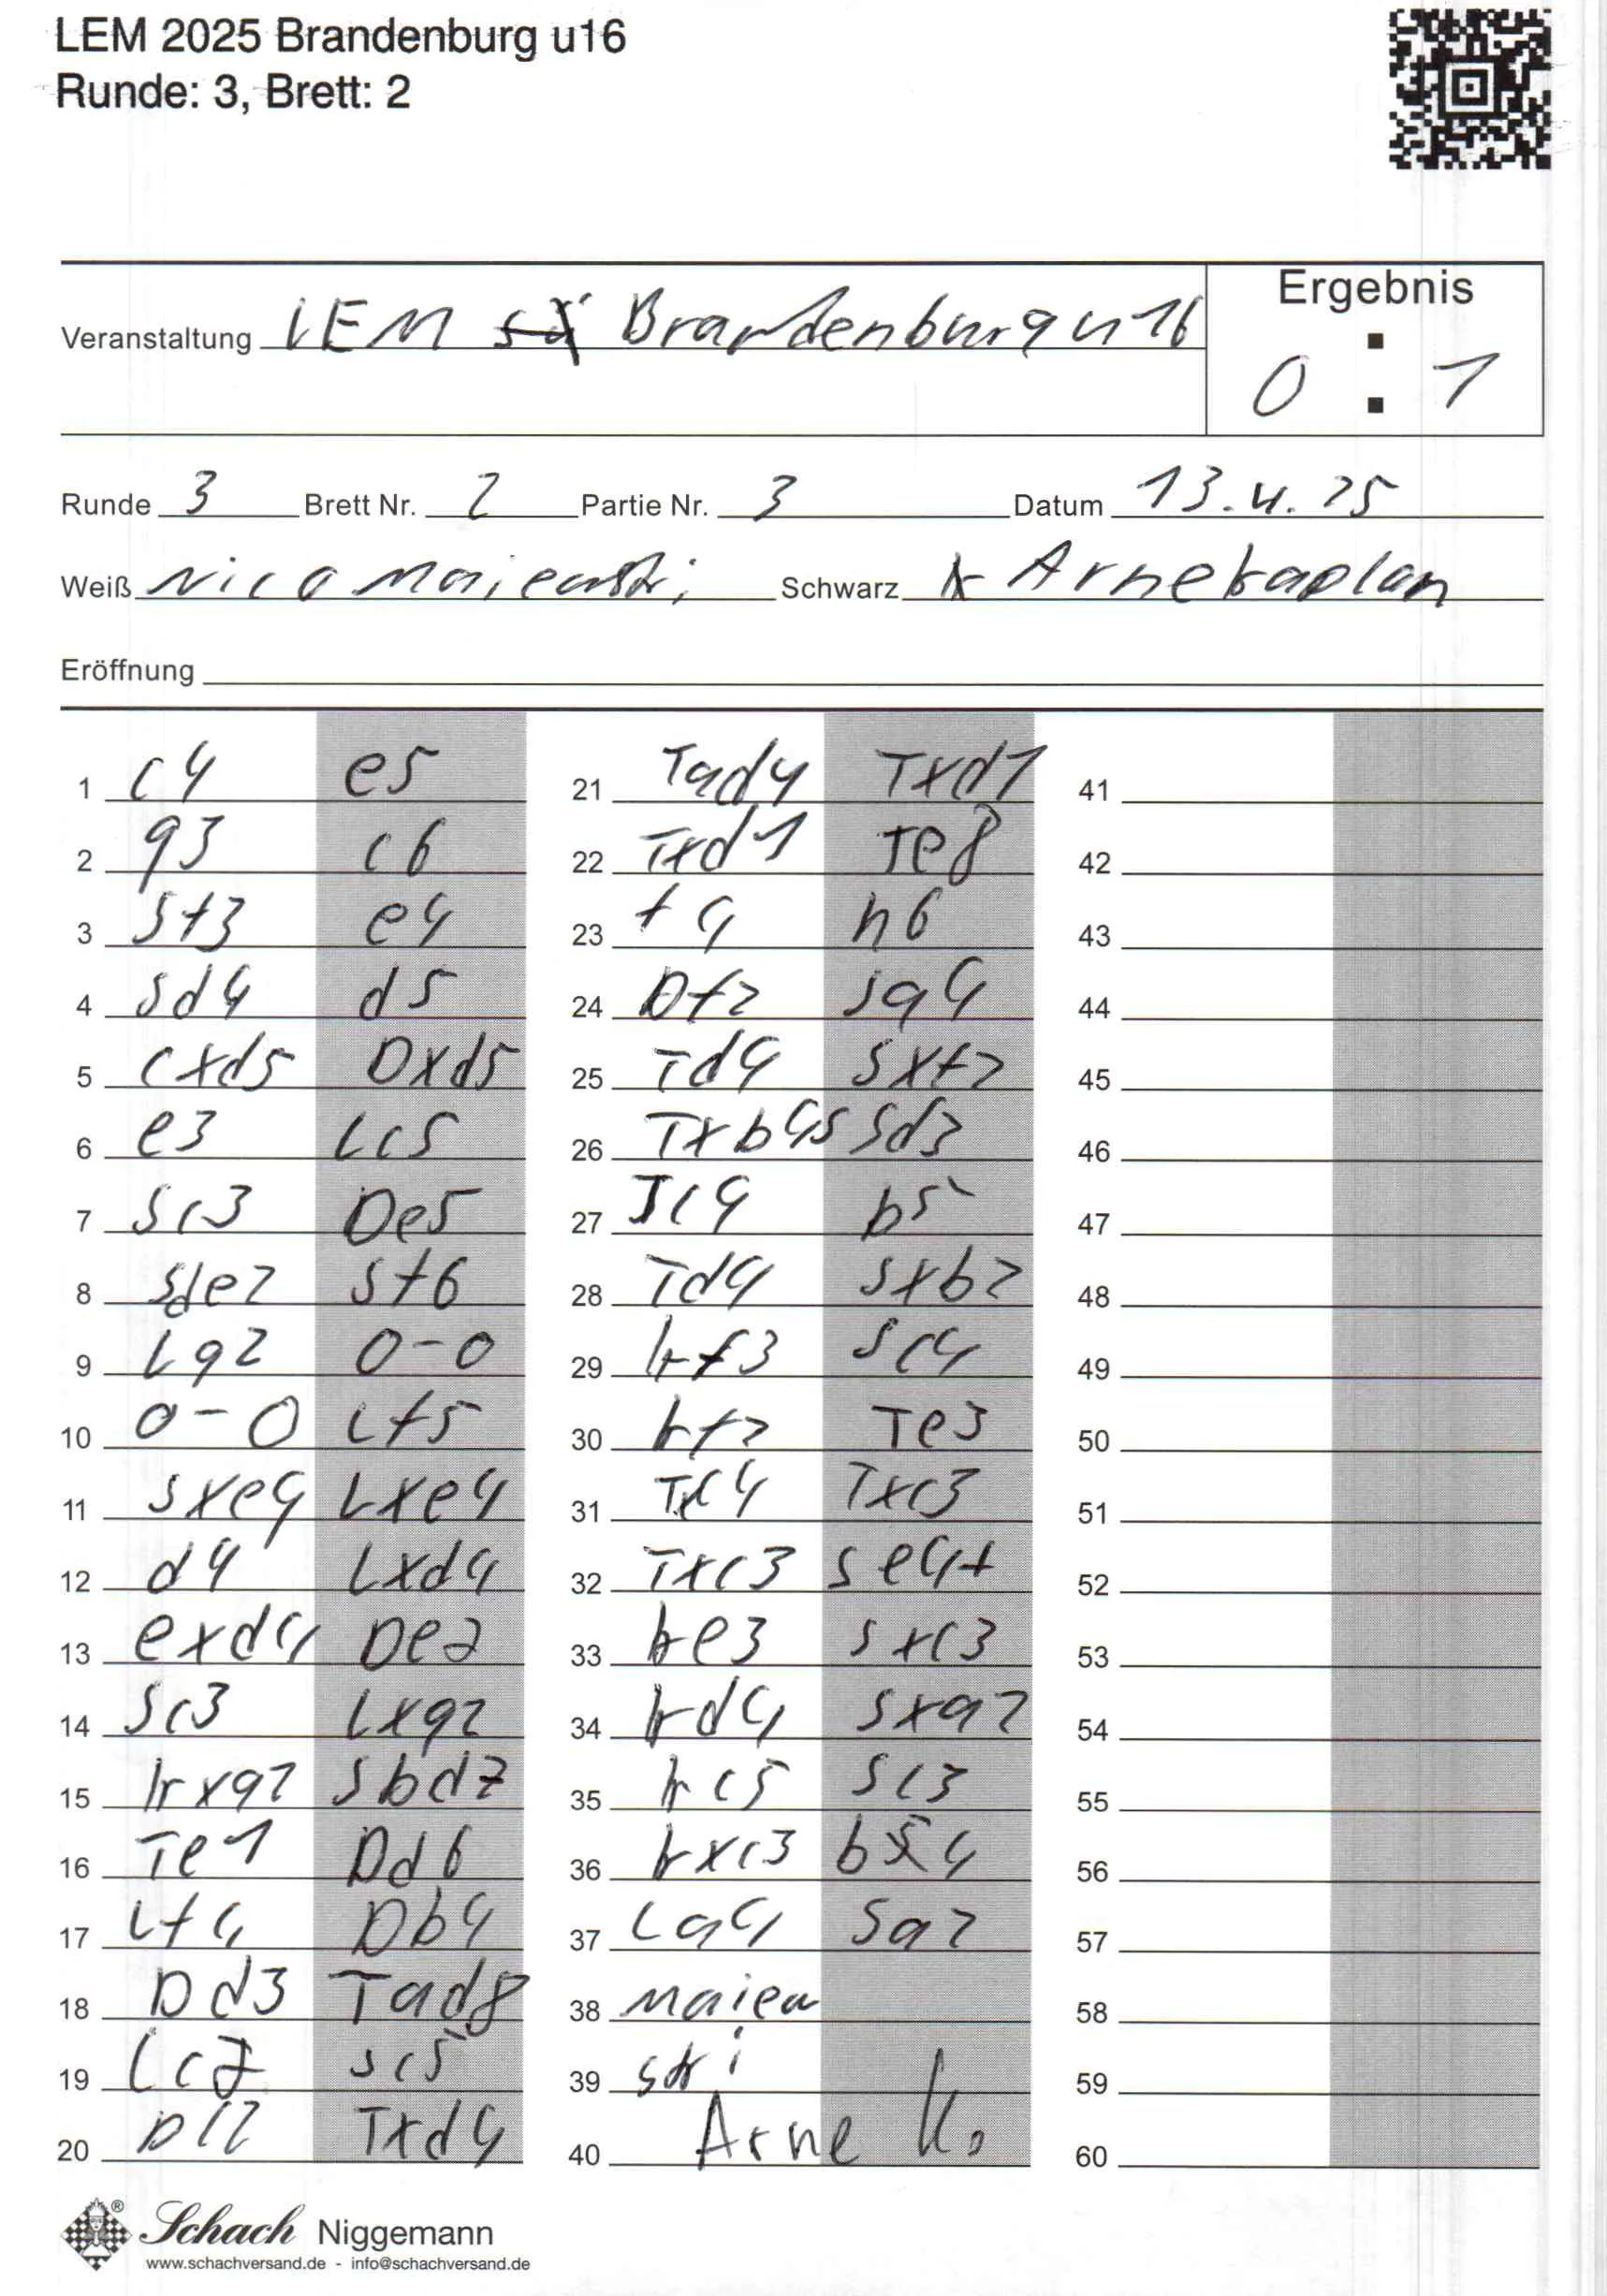 LEM 2025 Brandenburg u16
Runde: 3, Brett: 2
Ergebnis
Veranstaltung LEM Brandenburg u16
0 : 1
Runde 3 Brett Nr. 2 Partie Nr. 3 Datum 13.4.25
Weiß Nico Maiewski Schwarz Arne Kaplan
Eröffnung
1 c4 e5
2 g3 c6
3 Sf3 e4
4 Sd4 d5
5 cxd5 Dxd5
6 e3 Lc5
7 Sc3 De5
8 Sde2 Sf6
9 Lg2 0-0
10 0-0 Lf5
11 Sxe4 Lxe4
12 d4 Lxd4
13 exd4 De2
14 Sc3 Lxg2
15 Kxg2 Sbd7
16 Te1 Dd6
17 Lf4 Db4
18 Dd3 Tad8
19 Lc7 Sc5
20 Dc2 Txd4
21 Tad4 Txd1
22 Txd1 Te8
23 f4 h6
24 Df2 Sg4
25 Td4 Sxf2
26 Txb4 Sd3
27 Tc4 b5
28 Td4 Sxb2
29 Kf3 Sc4
30 Kf2 Te3
31 Tc4 Txc3
32 Txc3 Se4+
33 Ke3 Sxc3
34 Kd4 Sxa2
35 Kc5 Sc3
36 Kxc3 b4
37 La4 Sa2
38 Maiew
39 ski
40 Arne K.
41
42
43
44
45
46
47
48
49
50
51
52
53
54
55
56
57
58
59
60
Schach Niggemann
www.schachversand.de - info@schachversand.de